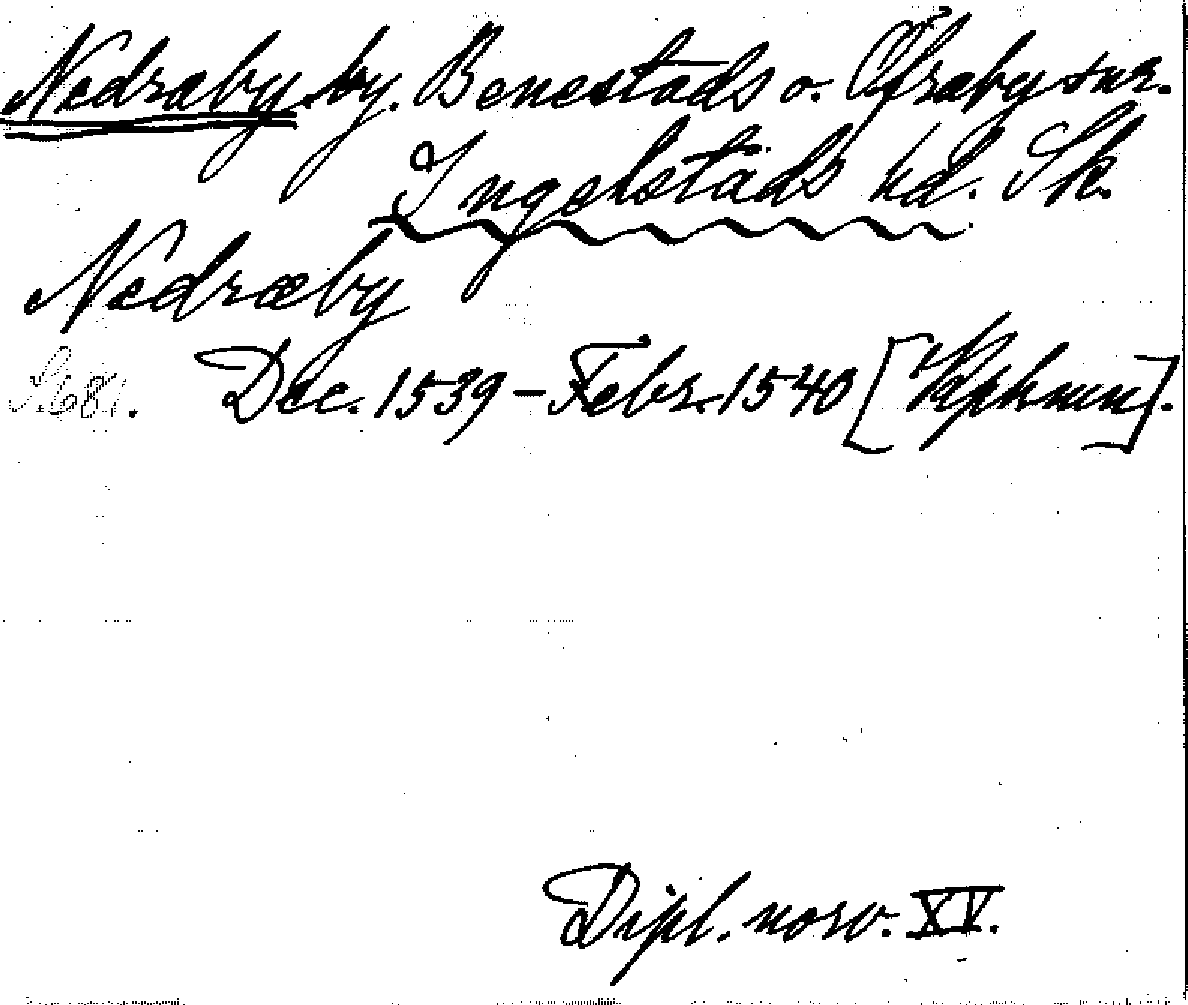 Nedraby by. Benestads o. Öfraby snr.
Ingelstads hd. Sk.
Nedræby
S. 681. Dec. 1539 – Febr. 1540 [Kphmn].
Dipl. norv. XV.